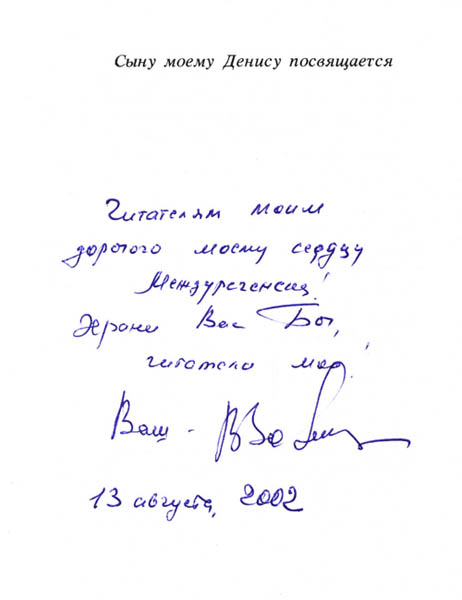 Сыну моему Денису посвящается
Читателям моим
дорогого моему сердцу
Междуреченска!
Храни Вас Бог,
читатели мои!
Ваш -
13 августа, 2002